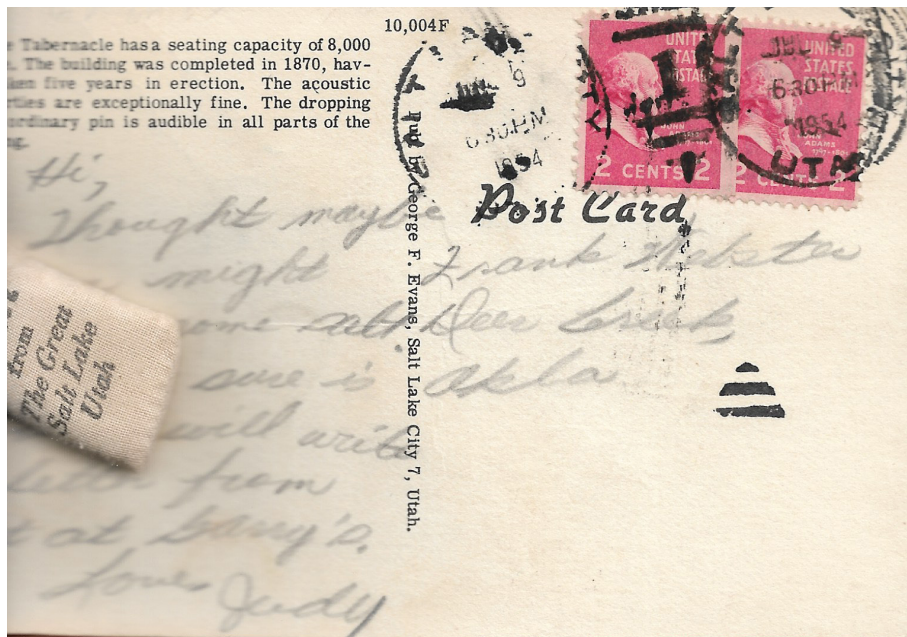 10,004F
Tabernacle has a seating capacity of 8,000
The building was completed in 1870, hav-
five years in erection. The acoustic
are exceptionally fine. The dropping
ordinary pin is audible in all parts of the
Hi,
Thought maybe
might
some salt
sure is
will write
from
at Garry's.
Love, Judy
from
The Great
Salt Lake
Utah
Pub by George F. Evans, Salt Lake City 7, Utah.
9
6 30 PM
1954
UNITED
STATES
POSTAGE
JOHN
ADAMS
2 CENTS 2
9
6 30 PM
1954
UTAH
UNITED
STATES
POSTAGE
JOHN
ADAMS
2 CENTS 2
Post Card
Frank Webster
Deer Creek,
Okla